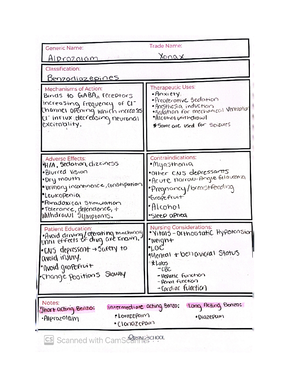 Generic Name: Trade Name:
Alprazolam Xanax
Classification:
Benzodiazepines
Mechanisms of Action:
•Binds to GABA₂ receptors
increasing frequency of Cl⁻
channel opening which increases
Cl⁻ influx decreasing neuronal
excitability.
Therapeutic Uses:
•Anxiety
•Preoperative Sedation
•Anesthesia induction
•Sedation for mechanical ventilation
•Alcohol withdrawal
*Some are used for seizures
Adverse Effects:
•H/A, Sedation, dizziness
•Blurred vision
•Dry mouth
•Urinary incontinence, constipation
•Leukopenia
•Paradoxical Stimulation
•Tolerance, dependence, +
Withdrawal Symptoms.
Contraindications:
•Myasthenia
•Other CNS depressants
•Acute narrow-angle glaucoma
•Pregnancy/breastfeeding
•Grapefruit
•Alcohol
•Sleep apnea
Patient Education:
•Avoid driving/operating machinery
until effects of drug are known.
•CNS depressant → Safety to
avoid injury.
•Avoid grapefruit
•Change Positions Slowly
Nursing Considerations:
•Vitals - Orthostatic Hypotension
•Weight
•LOC
•Mental + Behavioral Status
*Labs
-CBC
-Hepatic function
-Renal function
-Cardiac function
Notes
Short acting Benzo: Intermediate Acting Benzo: Long Acting Benzo:
•Alprazolam •Lorazepam •Diazepam
•Clonazepam
CS Scanned with CamScanner